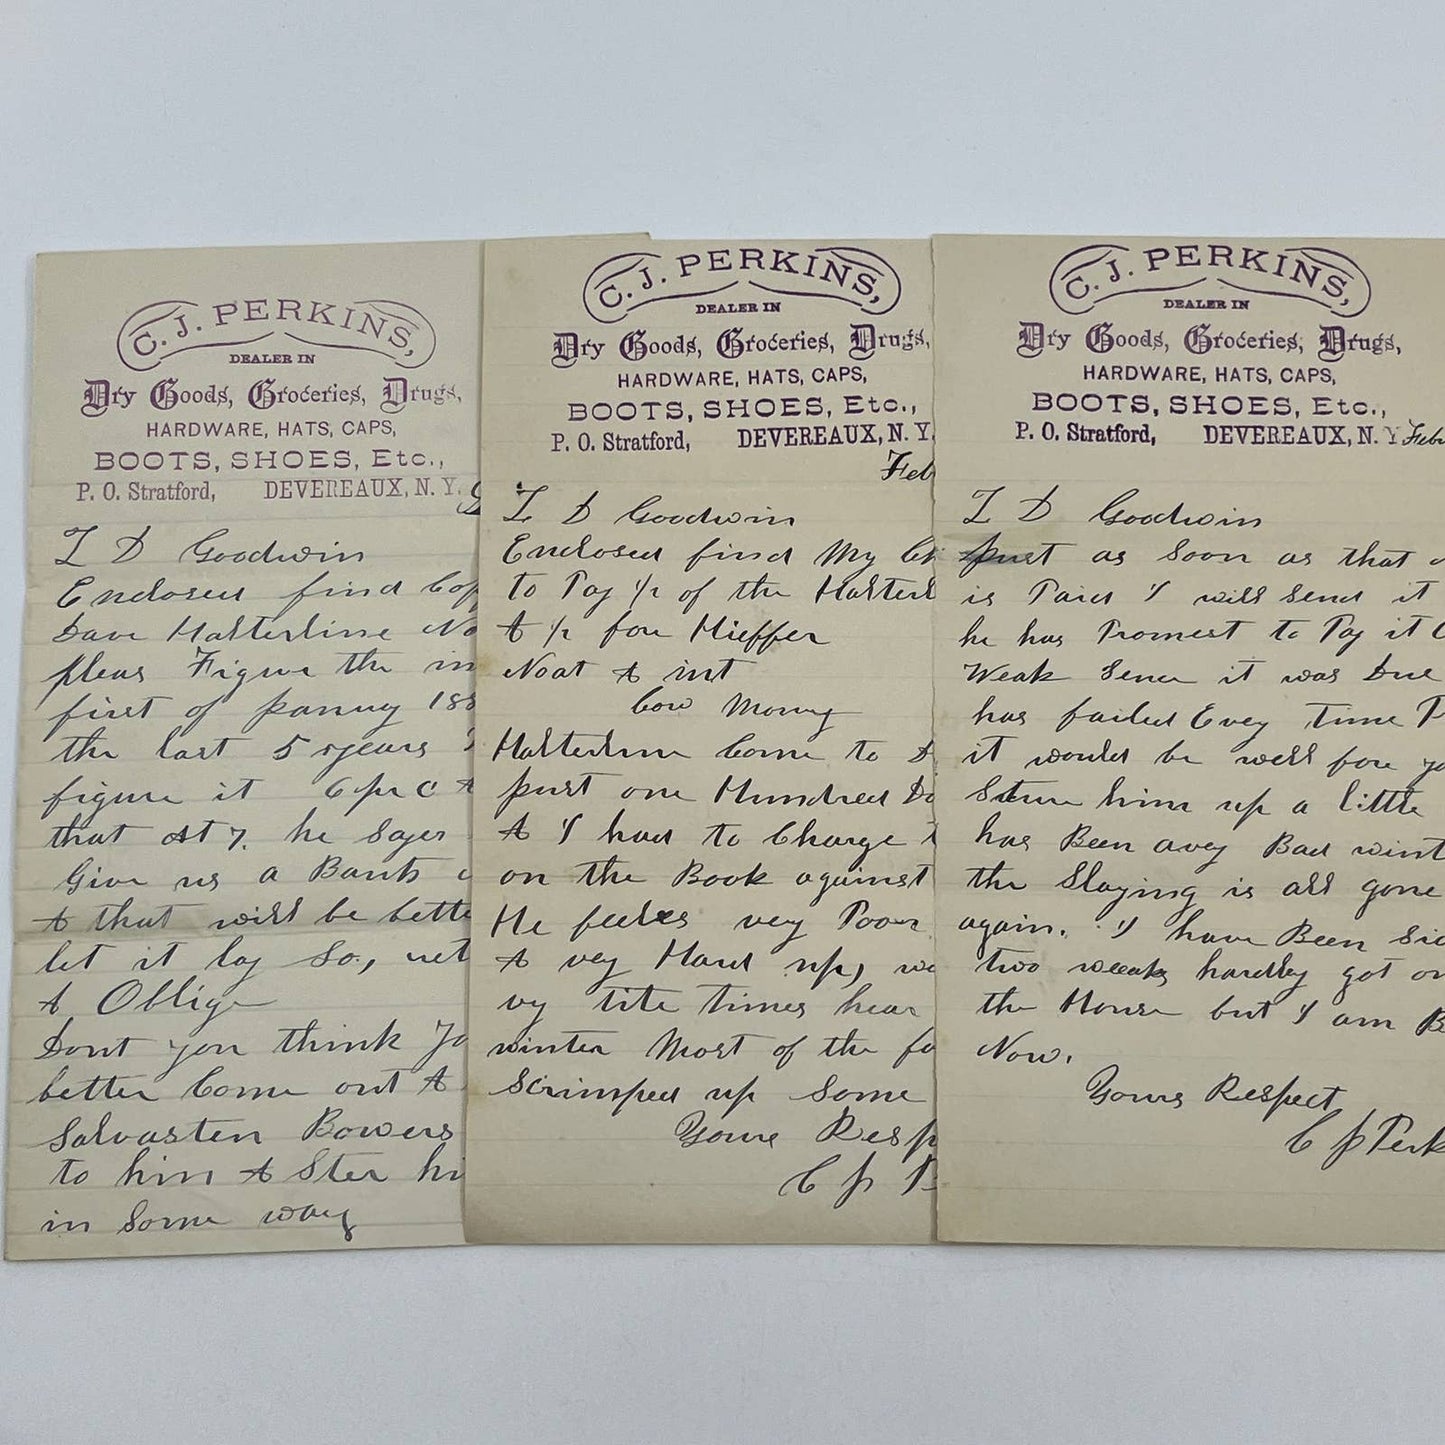 C. J. PERKINS,
DEALER IN
Dry Goods, Groceries, Drugs,
HARDWARE, HATS, CAPS,
BOOTS, SHOES, Etc.,
P. O. Stratford, DEVEREAUX, N. Y.
L D Goodwin
Enclosed find Cop
Dave Halterline No
pleas Figure the in
first of January 188
the last 5 years
figure it 6 pr c &
that at 7. he Sayes
Give us a Bank
& that will be bette
let it lay So,
& Oblige
Dont you think Yo
better Come out &
Salvasten Bowers
to him & Ster hi
in Some way
C. J. PERKINS,
DEALER IN
Dry Goods, Groceries, Drugs,
HARDWARE, HATS, CAPS,
BOOTS, SHOES, Etc.,
P. O. Stratford, DEVEREAUX, N. Y.
Feb
L D Goodwin
Enclosed find My
to Pay 1/2 of the Halterl
& 1/2 for Hieffer
Noat & int
Cow Money
Halterline Come to D
just one Hundred Do
& I had to Charge
on the Book against
He feeles vey Poor
& vey Hard up, we
vy tite times hear
winter Most of the fa
Scrimped up Some
Youre Resp
C J P
C. J. PERKINS,
DEALER IN
Dry Goods, Groceries, Drugs,
HARDWARE, HATS, CAPS,
BOOTS, SHOES, Etc.,
P. O. Stratford, DEVEREAUX, N. Y. Febr
L D Goodwin
Just as Soon as that
is Paid I will Send it
he has Promest to Pay it
Weak Sence it was Due
has failed Evey time
it would be well fore yo
Sture him up a little
has Been avey Bad wint
the Slaying is all gone
again. I have Been Sic
two weeks hardley got o
the House but I am B
Now.
Yours Respect
C J Perk